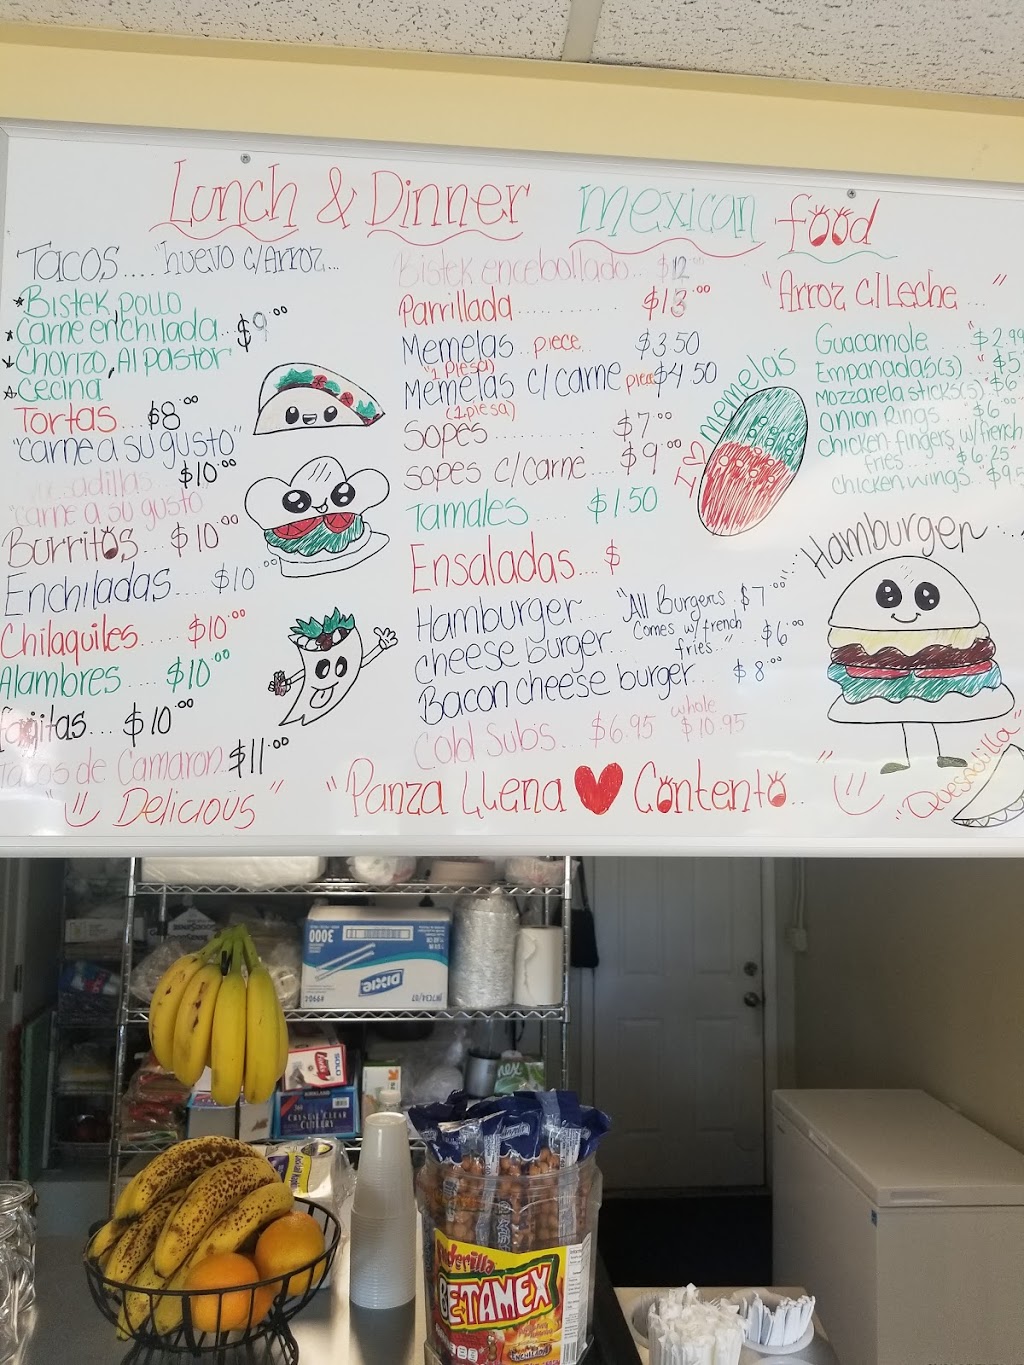 Lunch & Dinner Mexican food
Tacos..... "huevo c/Arroz...
*Bistek, pollo
*Carne enchilada... $9.00
*Chorizo, Al pastor
*Cecina
Tortas.... $8.00
"carne a su gusto"
$10.00
"carne a su gusto
Burritos.... $10.00
Enchiladas..... $10.00
Chilaquiles..... $10.00
Alambres..... $10.00
fajitas.... $10.00
Tacos de Camaron. $11.00
"Delicious"
Bistek encebollado... $12.00
Parrillada........... $13.00
Memelas.. piece.... $3.50
"1 piesa)
Memelas c/carne piece $4.50
(1 piesa)
Sopes............ $7.00
Sopes c/carne.... $9.00
Tamales..... $1.50
Ensaladas.... $
Hamburger... "All Burgers $7.00
cheese burger... Comes w/french $6.00
fries..."
Bacon cheese burger... $8.00
whole
Cold Subs... $6.95 $10.95
"Panza Llena Contento..
I Memelas
"Arroz c/Leche..."
Guacamole "$2.99
Empanadas(3) "$5
Mozzarela sticks(5) "$6
onion Rings.. "$6.00
chicken fingers w/french
fries..... "$6.25"
chicken wings.. "$9.5
Hamburger
"Quesadilla"
3000
DIXIE
SOLO
KIRKLAND
CRYSTAL CLEAR
CUTLERY
BETAMEX